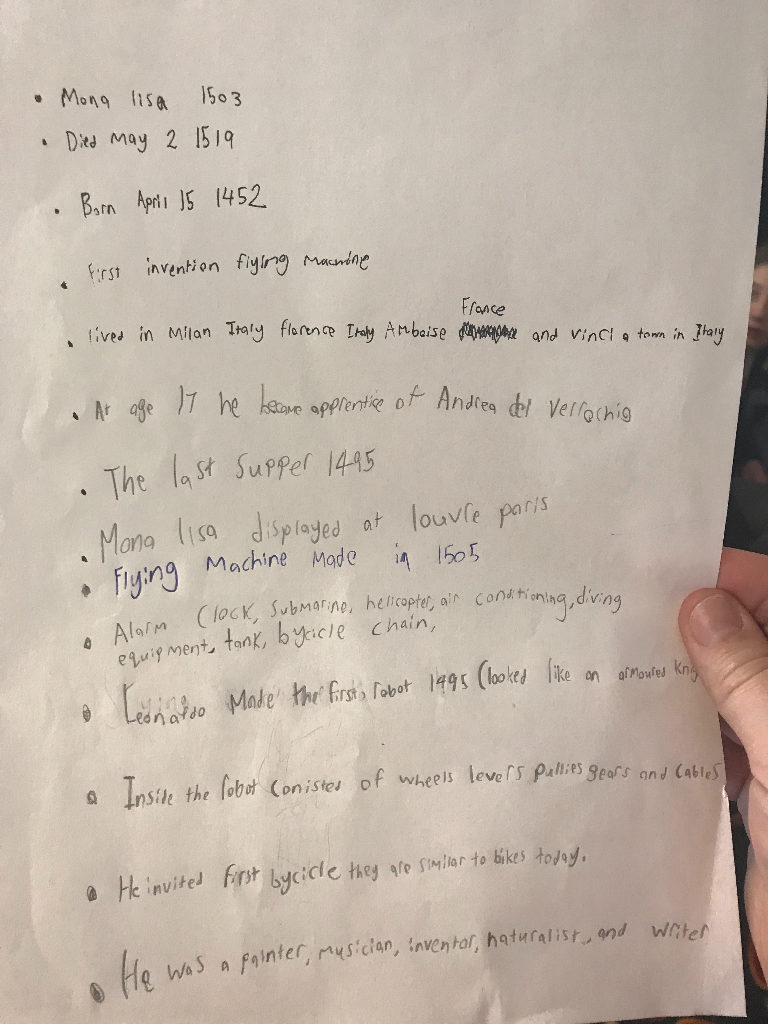 • Mona lisa 1503
• Died May 2 1519
• Born April 15 1452
• First invention flying Machine
France
• lived in Milan Italy florence Italy Amboise and vinci a town in Italy
• At age 17 he became apprentice of Andrea del Verrochio
• The last Supper 1495
• Mona lisa displayed at louvre paris
• Flying Machine Made in 1505
• Alarm Clock, Submarine, helicopter, air conditioning, diving
equipment, tank, bycicle chain,
• Leonardo Made the first robot 1495 (looked like an armoured
• Inside the robot Conisted of wheels levers pullies gears and Cables
• He invited first bycicle they are similar to bikes today.
• He was a painter, musician, inventor, naturalist, and writer